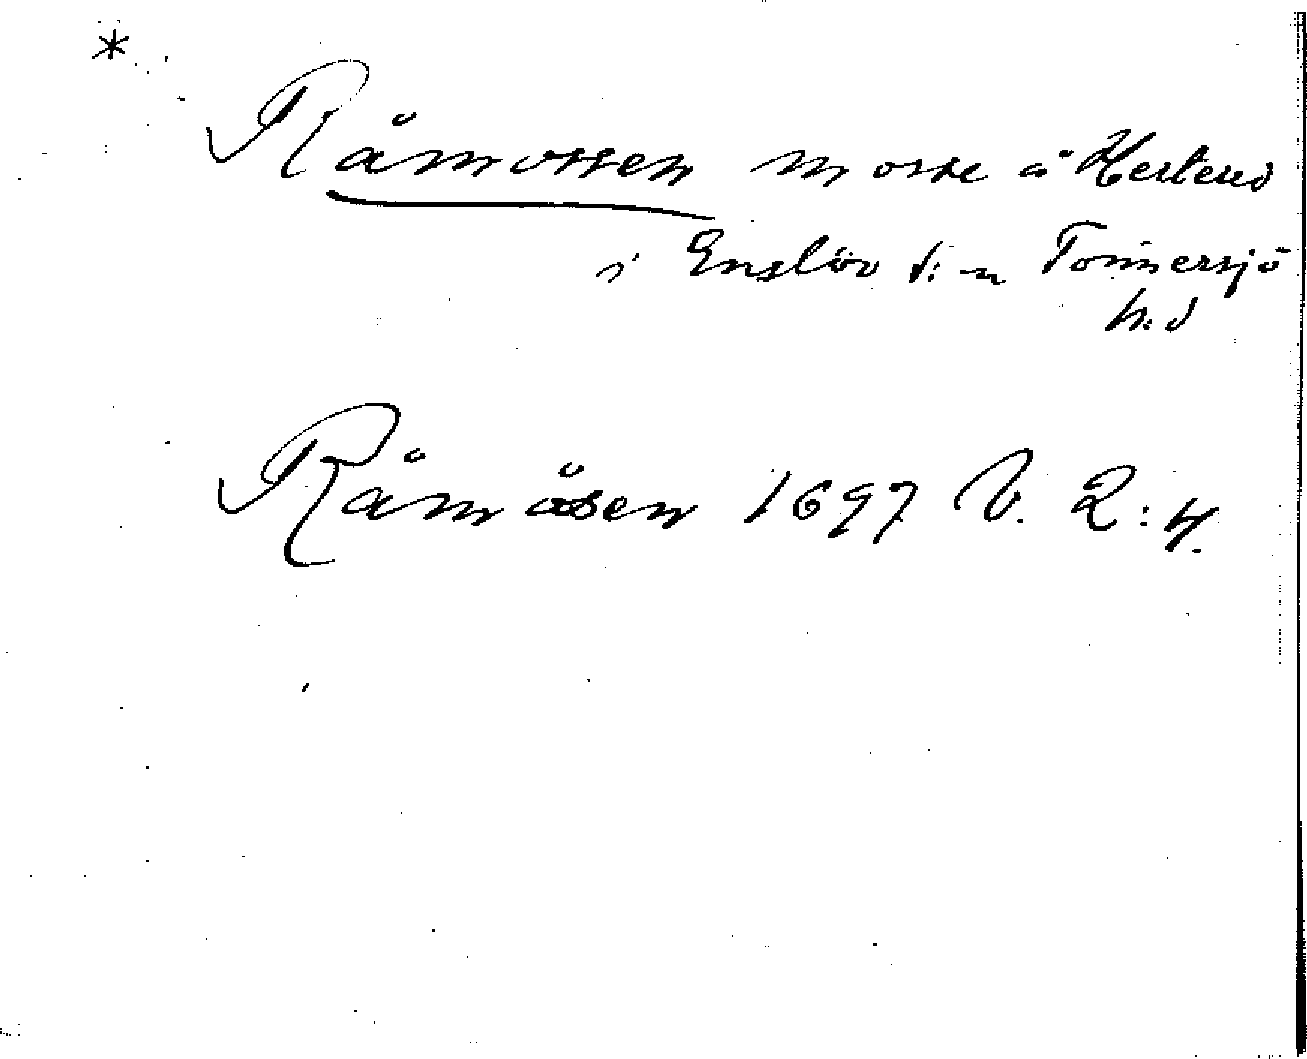 * Råmossen mosse å Hertered
i Enslöv s:n Tönnersjö
h:d
Råmåsen 1697 V. 2:4.